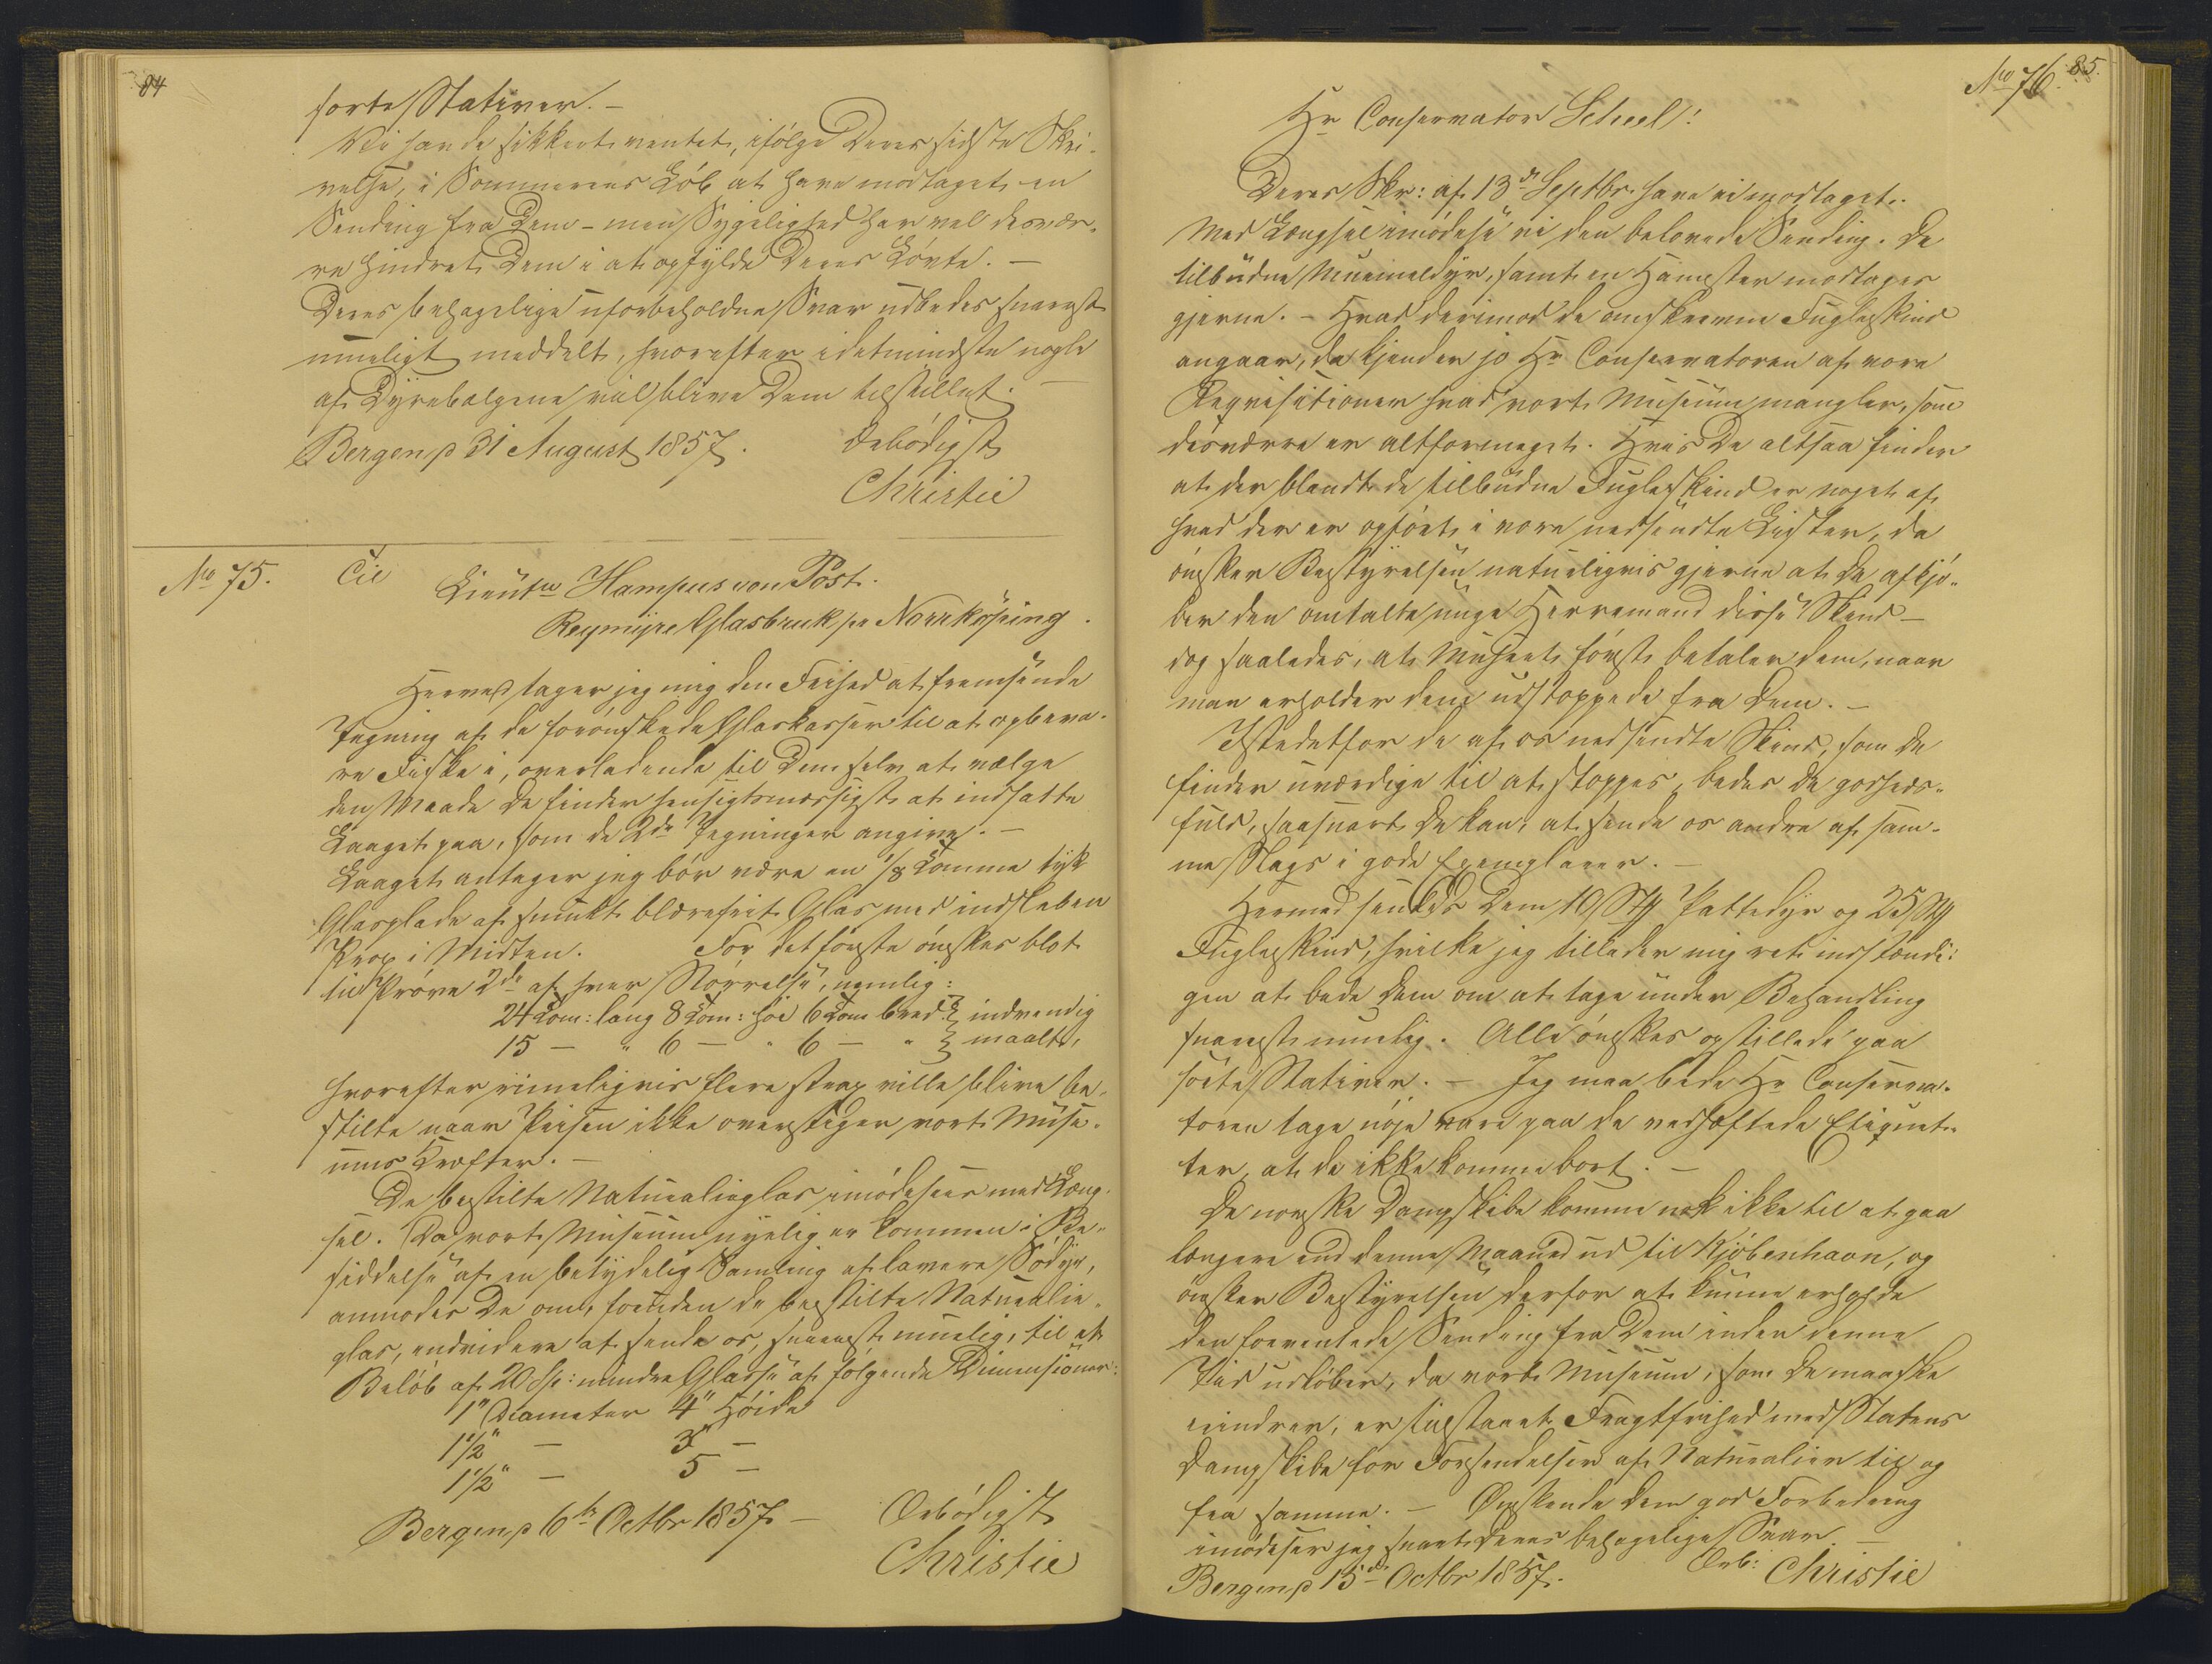 84
sorte Stativer. –
Vi havde sikkert ventet, ifølge Deres sidste Skri-
velse, i Sommerens Løb at have modtaget en
Sending fra Dem – men Sygelighed har vel desvær-
re hindret Dem i at opfylde Deres Løvte. –
Deres behagelige uforbeholdne Svar udbedes snarest
mueligt meddelt, hvorefter idetmindste nogle
af Dyrebalgene vil blive Dem tilstillet. –
Bergen p 31 August 1857. Ærbødigst
Christie
No 75. Til Lieutn Hampus von Post.
Reymyre Glasbruk pr Norrköping.
Herved tager jeg mig den Frihed at fremsende
Tegning af de forønskede Glaskasser til at opbeva-
re Fiske i, overladende til Dem selv at vælge
den Maade De finder hensigtsmæssigst at indsatte
Laaget paa, som de 2de Tegninger angive. –
Laaget antager jeg bør være en 1/8 Tomme tyk
Glasplade af smukt blærefrit Glas med indsleben
Prop i Midten. For det første ønskes blot
til Prøve 2de af hver Størrelse, nemlig:
24 Tom: lang 8 Tom: høi 6 Tom bred } indvendig
15 – " 6 – " 6 – " } maalt,
hvorefter rimeligvis flere strax ville blive be-
stilte naar Prisen ikke overstiger vort Muse-
ums Kræfter. –
De bestilte Naturalieglas imødesees med Læng-
sel. Da vort Museum nyelig er kommen i Be-
siddelse af en betydelig Samling af lavere Sødyr,
anmodes De om, foruden de bestilte Naturalie-
glas, endvidere at sende os, snarest muelig, til et
Beløb af 20 Sp: mindre Glasse af følgende Dimensioner:
1" Diameter 4" Høide
1 1/2" – 3" –
1 1/2" – 5 –
Bergen p 6te Octbr 1857 – Ærbødigst
Christie
No 76. 85.
Hr Conservator Scheel!
Deres Skr: af 13de Septbr. have vi modtaget.
Med Længsel imødese vi den belovede Sending. De
tilbudne Murmeldyr, samt en Hamster modtages
gjerne. – Hvad derimod de omskrevne Fugleskind
angaar, da kjender jo Hr Conservatoren af vore
Reqvisitioner hvad vort Museum mangler, som
desværre er altformeget. Hvis De altsaa finder
at der blandt de tilbudne Fugleskind er noget af
hvad der er opført i vore nedsendte Lister, da
ønsker Bestyrelsen naturligvis gjerne at De afkjø-
ber den omtalte unge Herremand disse Skind –
dog saaledes, at Museet først betaler dem, naar
man erholder dem udstoppede fra Dem. –
Istedetfor de af os nedsendte Skind, som De
finder uværdige til at stoppes, bedes De godheds-
fuld, saasnart De kan, at sende os andre af sam-
me Slags i gode Exemplarer. –
Hermed sendes Dem 10 Stk Pattedyr og 25 Stk
Fugleskind, hvilke jeg tillader mig ret indstændi-
gen at bede Dem om at tage under Behandling
snarest muelig. Alle ønskes opstillede paa
sorte Stativer. – Jeg maa bede Hr Conserva-
toren tage nøje vare paa de vedhæftede Etiquet-
ter, at de ikke komme bort. –
De norske Dampskibe komme nok ikke til at gaa
længere end denne Maaned ud til Kjøbenhavn, og
ønsker Bestyrelsen derfor at kunne erholde
den forventede Sending fra Dem inden denne
Tid udløber, da vort Museum, som De maaske
erindrer, er tilstaaet Fragtfrihed med Statens
Dampskibe for Forsendelser af Naturalier til og
fra samme. – Ønskende Dem god Forbedring
imødeser jeg snart Deres behagelige Svar. –
Bergen p 15de Octbr 1857. Ærb: Christie